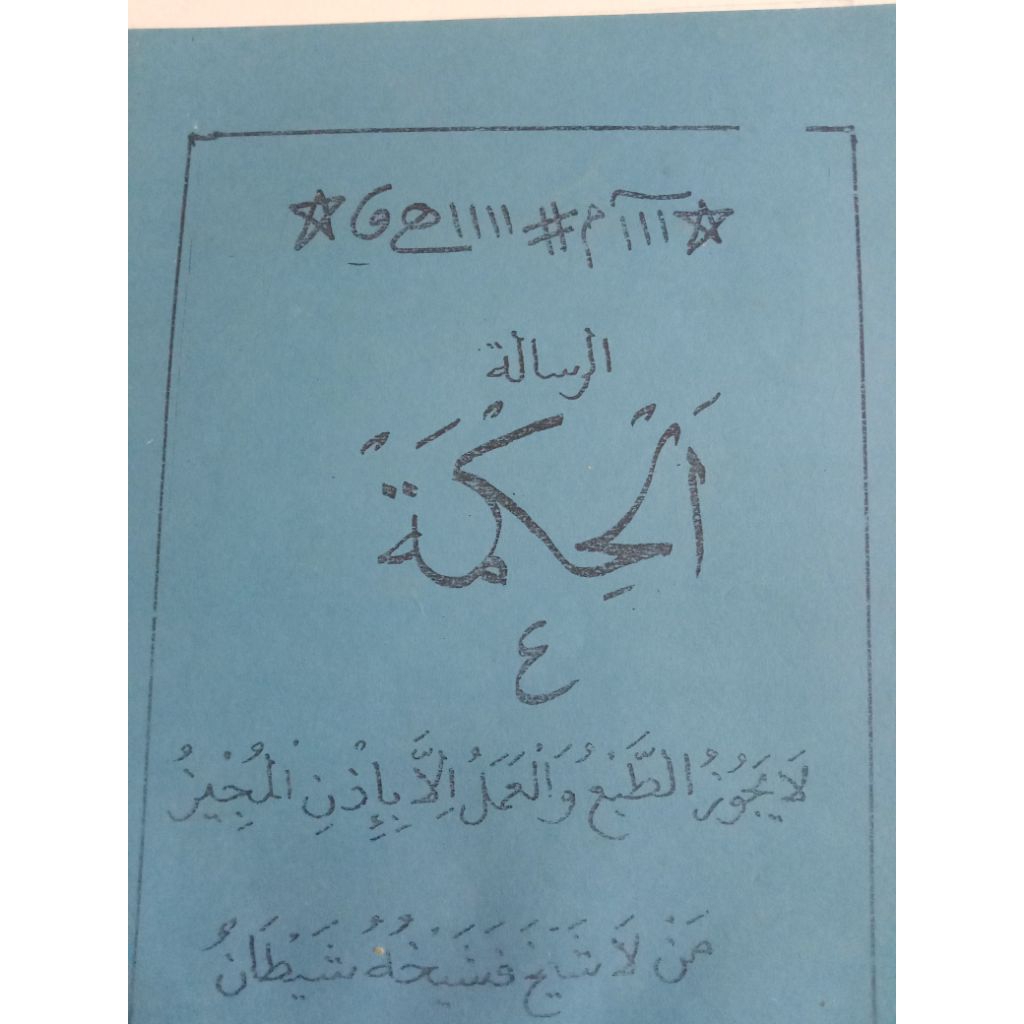 الرسالة
اَلْحِكْمَةْ
ع
لَا يَجُوْزُ الطَّبْعُ وَالْعَمَلُ اِلَّا بِإِذْنِ الْمُجِيْزُ
مَنْ لَا شَيْخَ فَشَيْخُهُ شَيْطَانٌ